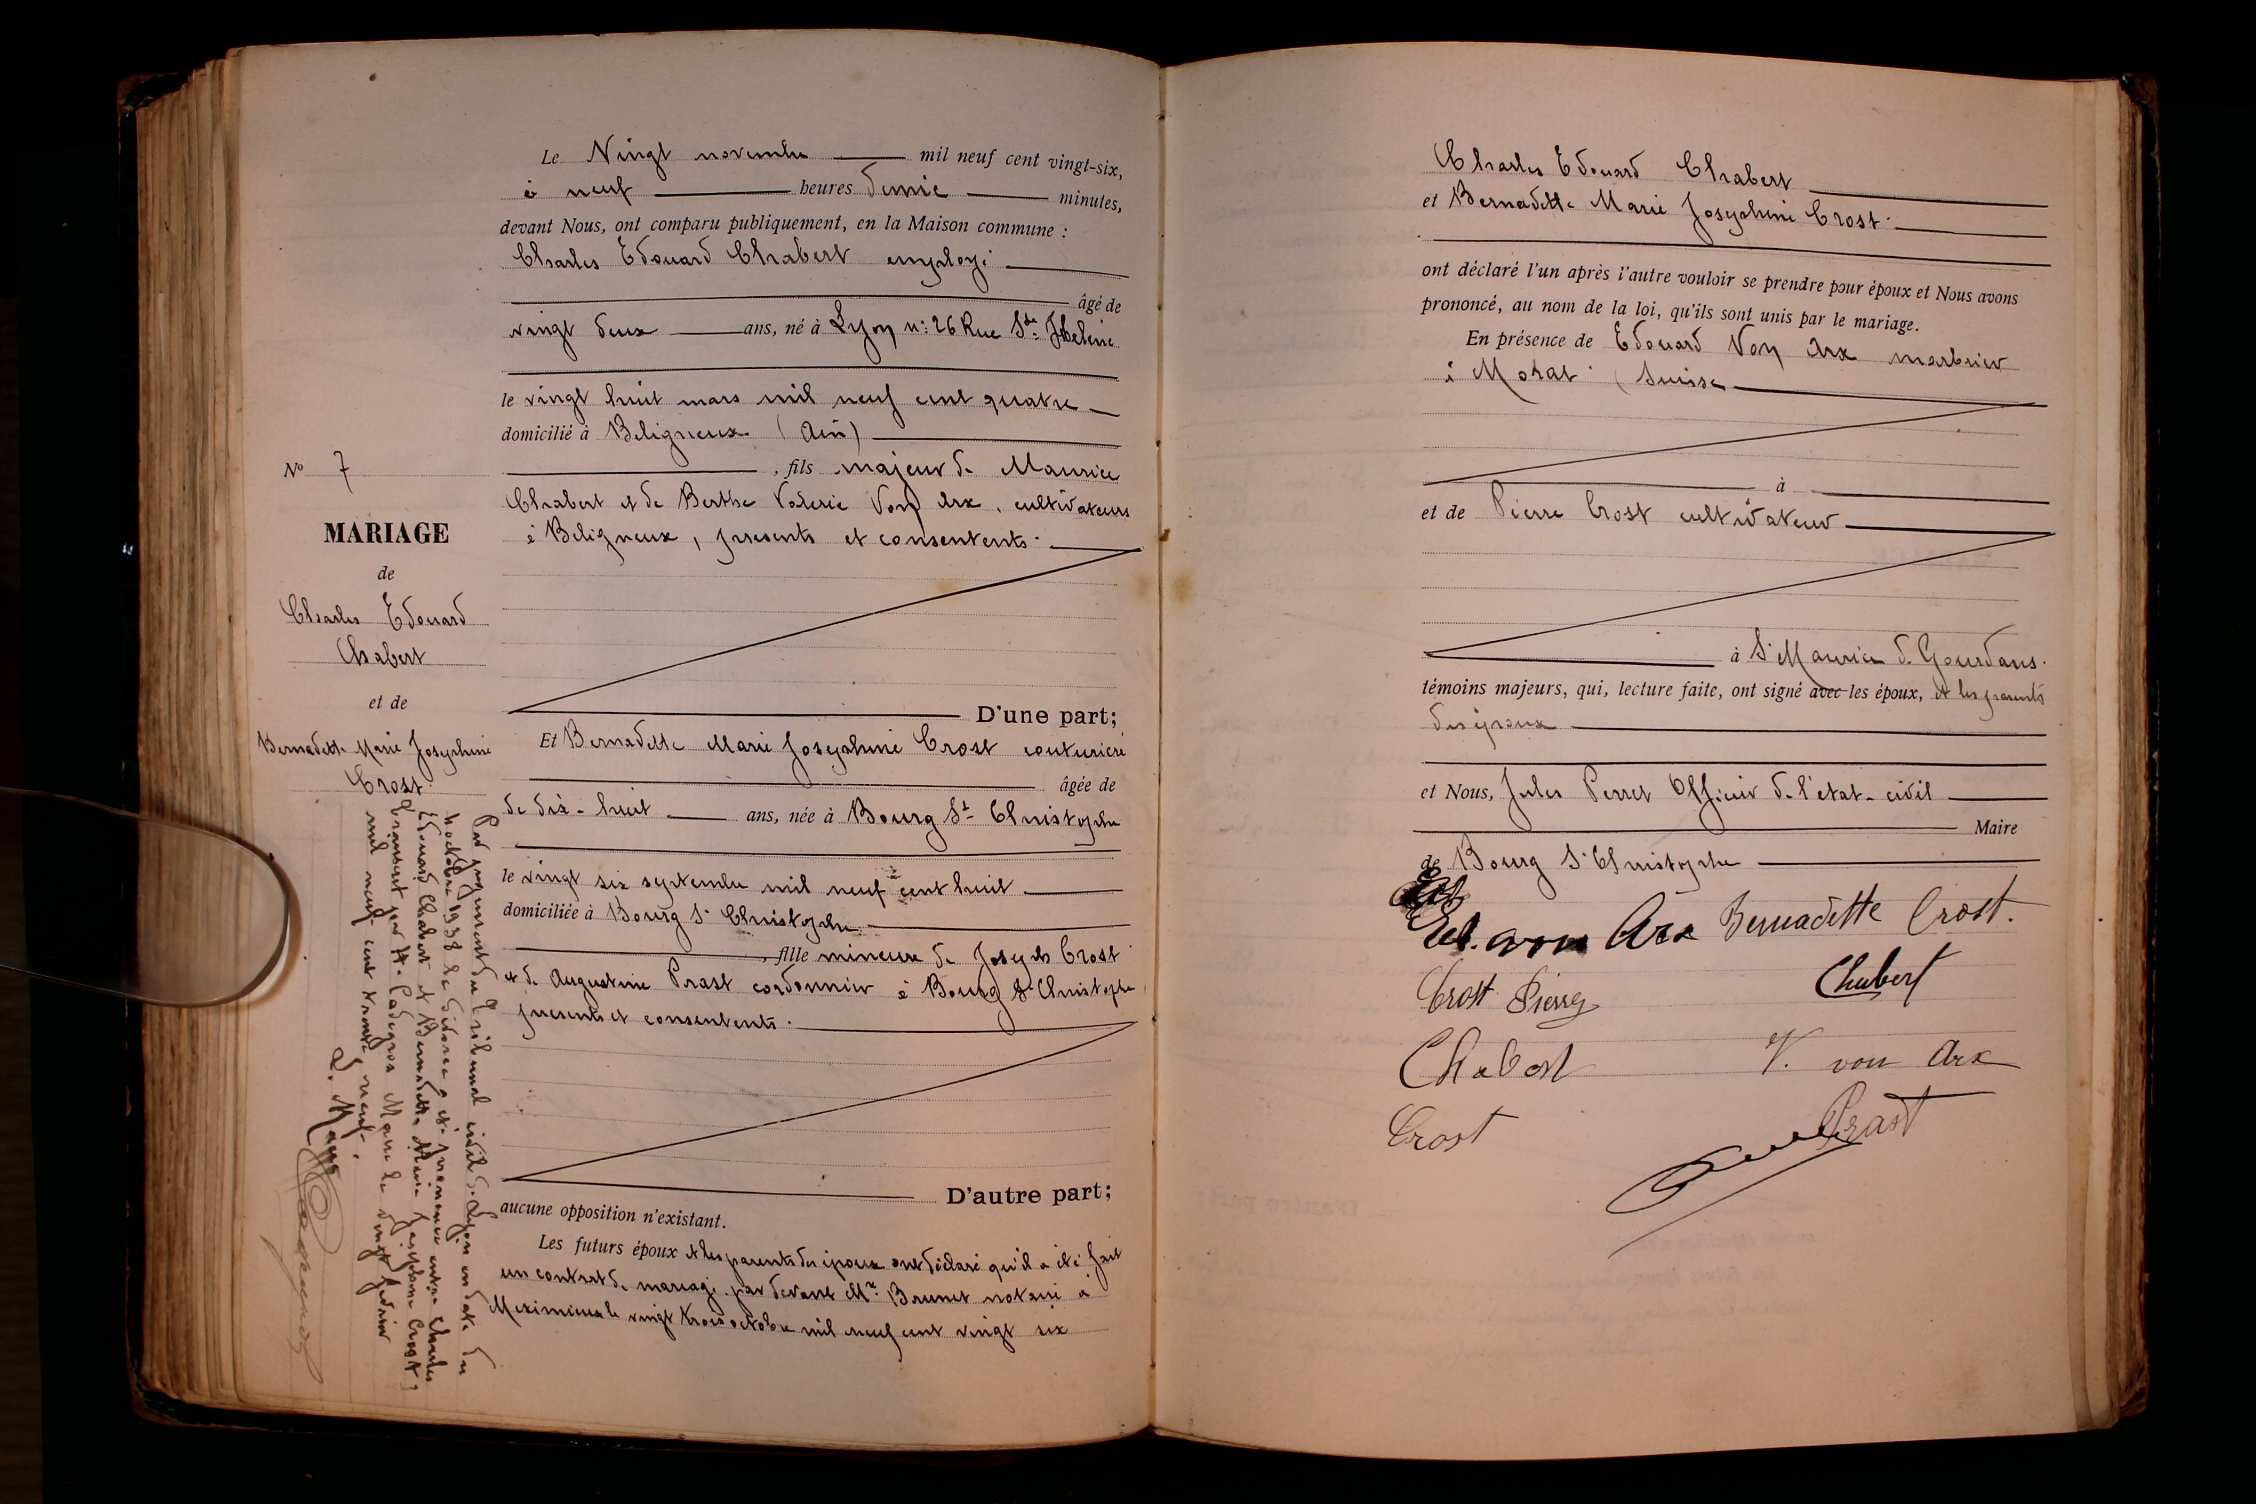 Le Vingt novembre mil neuf cent vingt-six,
à neuf heures demie minutes,
devant Nous, ont comparu publiquement, en la Maison commune :
Charles Edouard Chabert employé
âgé de
vingt deux ans, né à Lyon n: 26 Rue Ste Helene
le vingt huit mars mil neuf cent quatre
domicilié à Beligneux (Ain)
, fils majeur de Maurice
Chabert et de Berthe Valerie Von Arx, cultivateurs
à Beligneux, presents et consentents.
D'une part;
Et Bernadette Marie Josephine Crost couturiere
âgée de
de dix-huit ans, née à Bourg St Christophe
le vingt six septembre mil neuf cent huit
domiciliée à Bourg St Christophe
, fille mineure de Joseph Crost
et de Augustine Prast cordonnier à Bourg St Christophe,
presents et consentents.
D'autre part;
aucune opposition n'existant.
Les futurs époux et les parents des époux ont déclaré qu'il a été fait
un contrat de mariage par devant Me Brunet notaire à
Meximieux le vingt trois octobre mil neuf cent vingt six
No 7
MARIAGE
de
Charles Edouard
Chabert
et de
Bernadette Marie Josephine
Crost
Par jugement du Tribunal civil de Lyon en date du
octobre 1938 le divorce a été prononcé entre Charles
Edouard Chabert et Bernadette Marie Josephine Crost,
Transcrit par Maire le vingt février
mil neuf cent trente neuf.
Charles Edouard Chabert
et Bernadette Marie Josephine Crost.
ont déclaré l'un après l'autre vouloir se prendre pour époux et Nous avons
prononcé, au nom de la loi, qu'ils sont unis par le mariage.
En présence de Edouard Von Arx marbrier
à Morat (Suisse
à
et de Pierre Crost cultivateur
à St Maurice de Gourdans.
témoins majeurs, qui, lecture faite, ont signé avec les époux, et les parents
des époux
et Nous, Jules Perret Officier de l'état-civil
Maire
de Bourg St Christophe
Ed. von Arx Bernadette Crost.
Crost Pierre Chabert
Chabert V. von Arx
Crost Prast